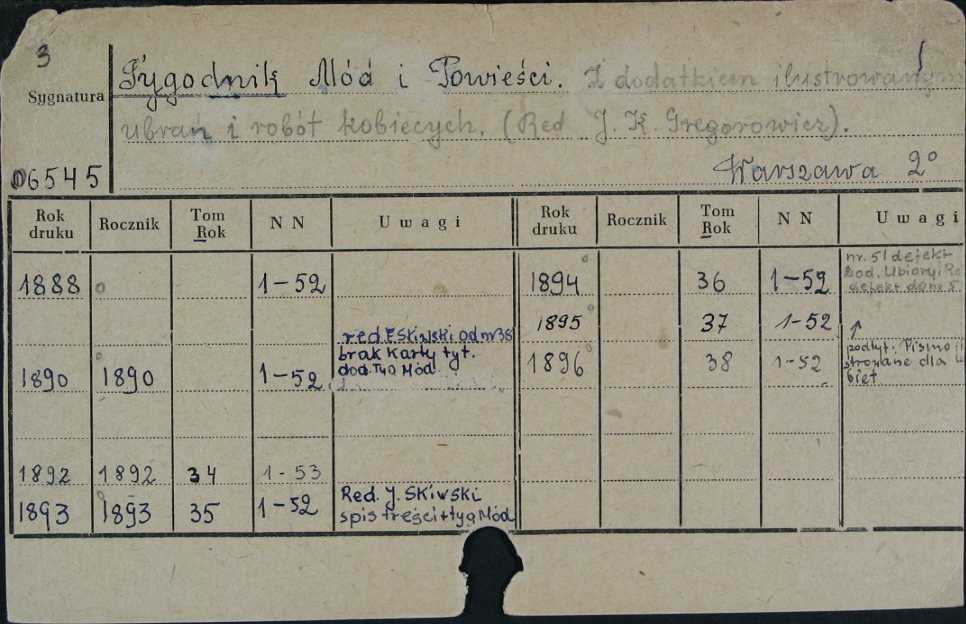 3
Tygodnik Mód i Powieści. Z dodatkiem ilustrowanym
Sygnatura
ubrań i robót kobiecych. (Red J. K. Gregorowicz).
06545
Warszawa 2°
Rok druku Rocznik Tom Rok N N Uwagi Rok druku Rocznik Tom Rok N N Uwagi
1888 1-52 1894 36 1-52 nr. 51 defekt
Dod. Ubiory i
defekt do nr 5
1895 37 1-52
red E Skiwski od nr 38
brak karty tyt. 1896 38 1-52 podtyt. Pismo
dod. Tyg Mód dla
biet
1890 1890 1-52
1892 1892 34 1-53
1893 1893 35 1-52 Red. J. Skiwski
spis treści + tyg Mód